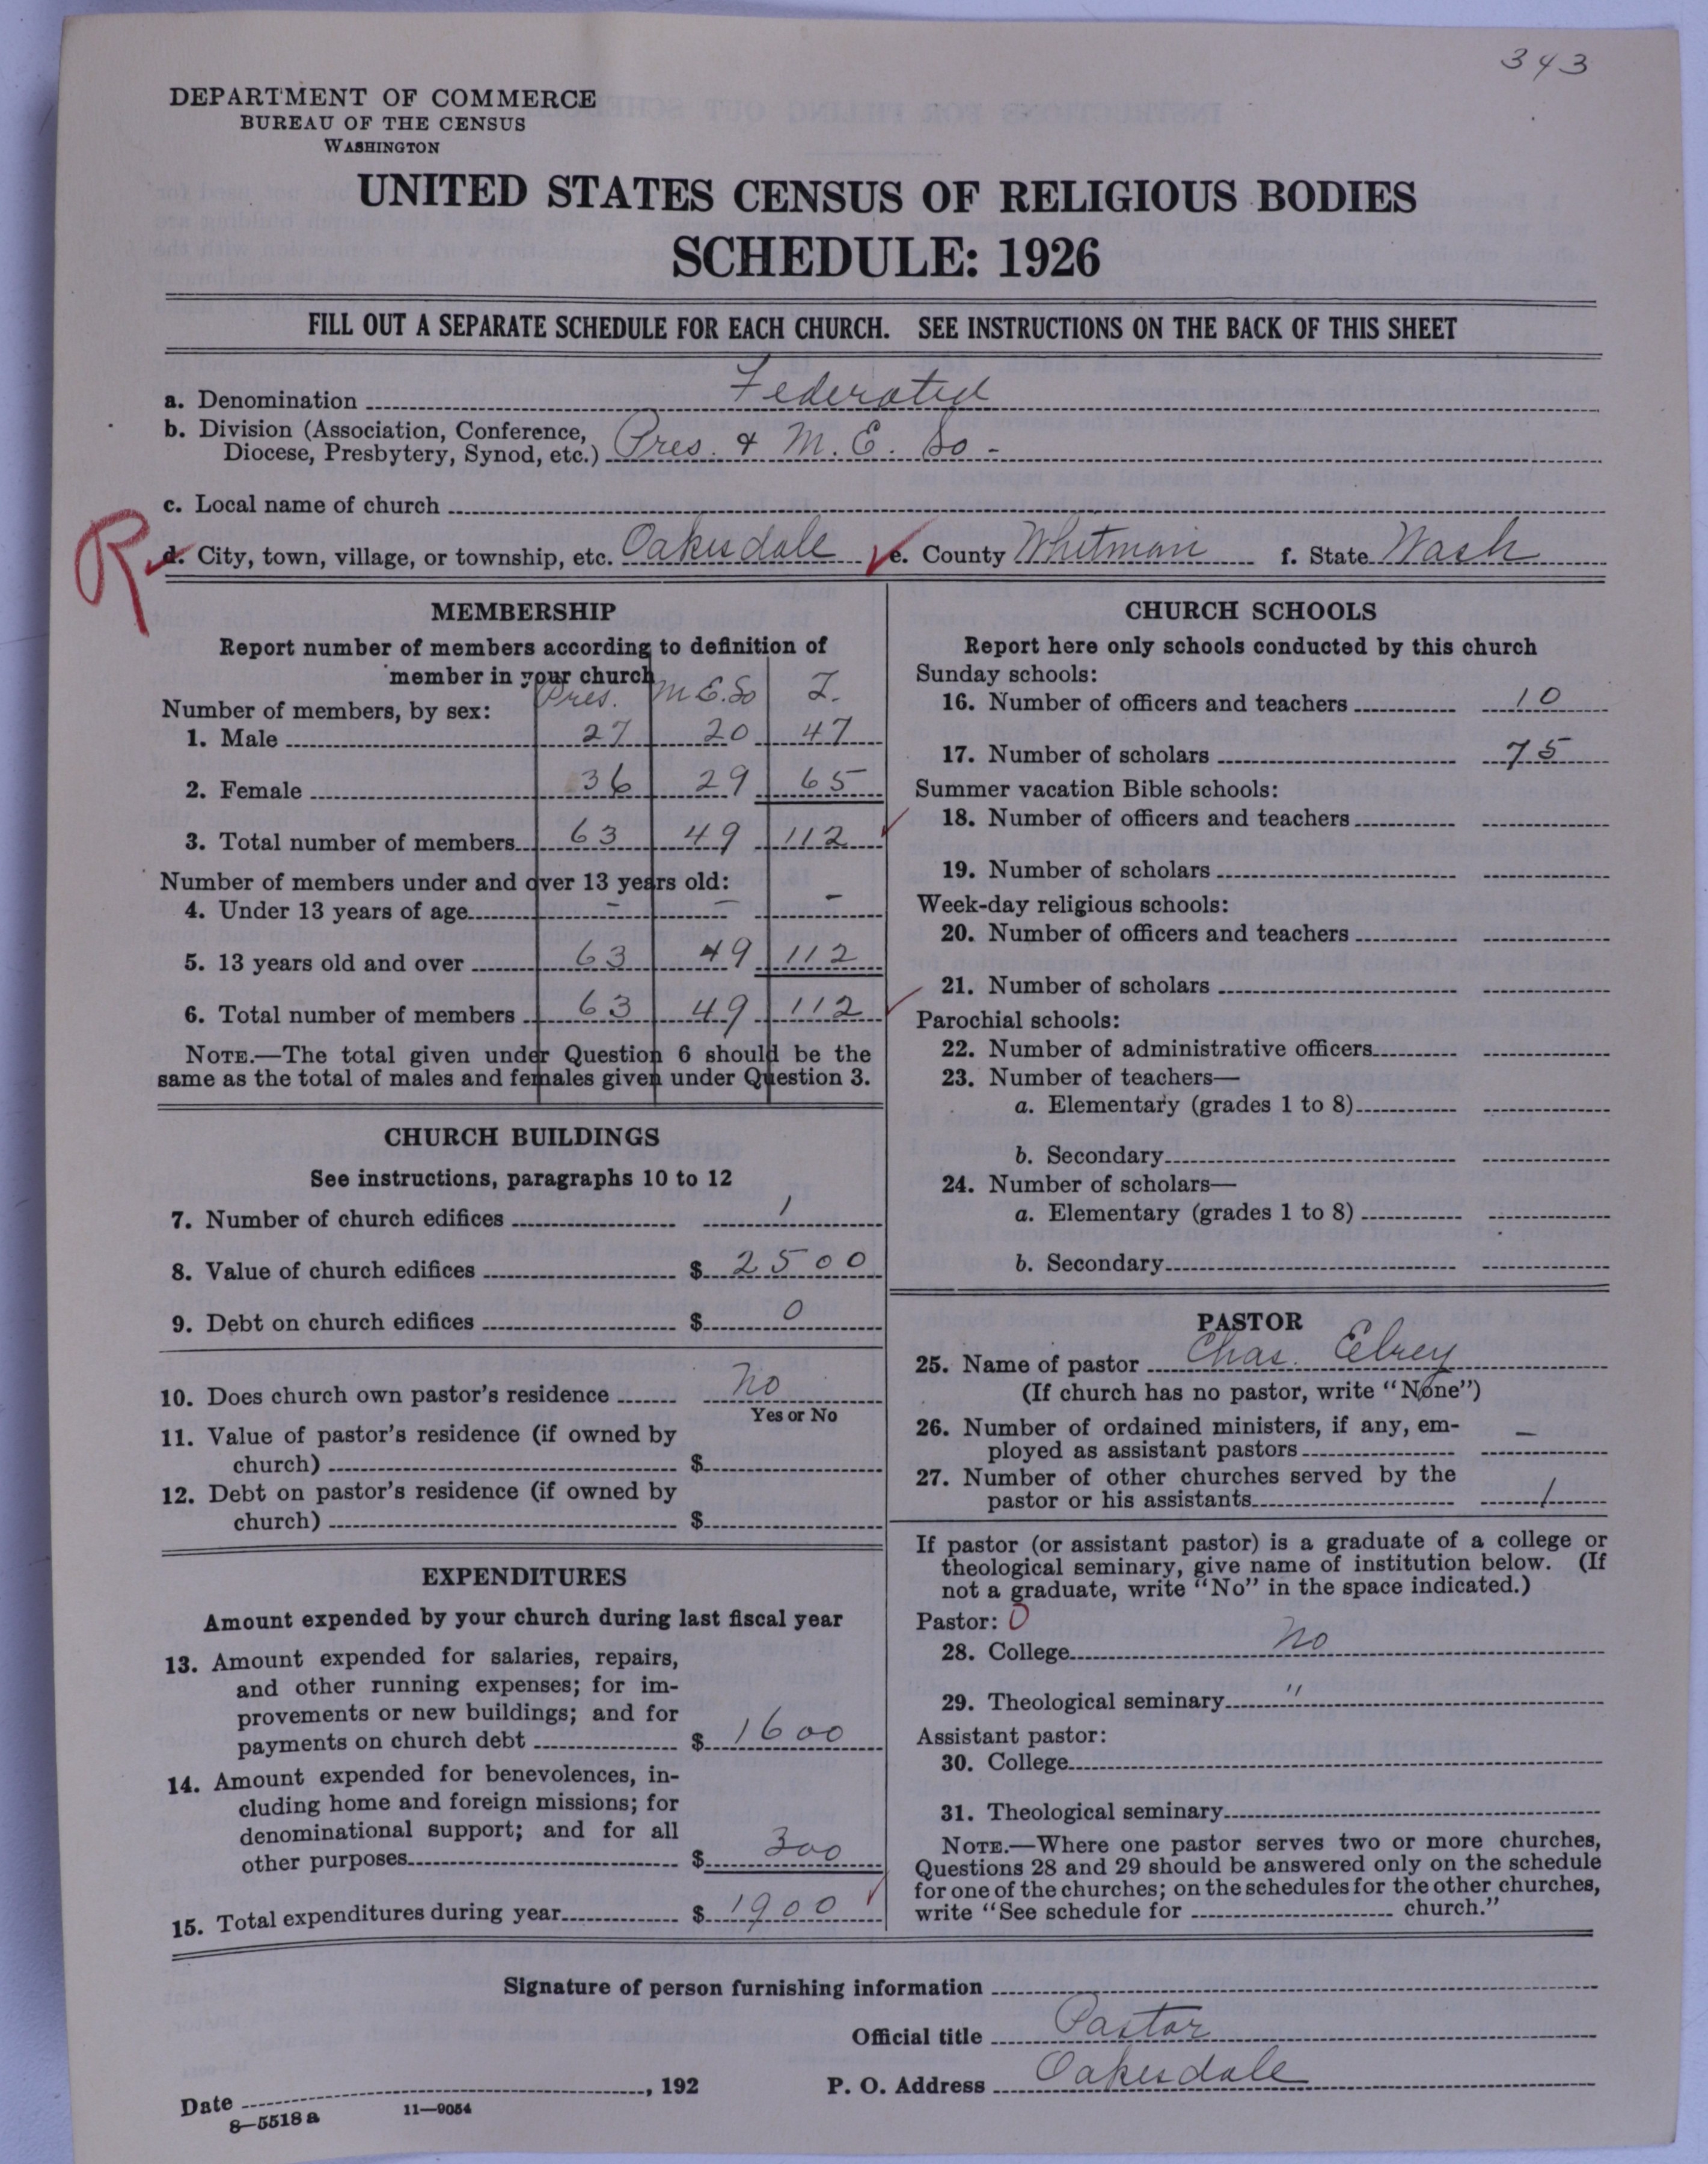 343
DEPARTMENT OF COMMERCE
BUREAU OF THE CENSUS
WASHINGTON
UNITED STATES CENSUS OF RELIGIOUS BODIES
SCHEDULE: 1926
FILL OUT A SEPARATE SCHEDULE FOR EACH CHURCH. SEE INSTRUCTIONS ON THE BACK OF THIS SHEET
a. Denomination Federated
b. Division (Association, Conference,
Diocese, Presbytery, Synod, etc.) Pres. & M. E. So -
c. Local name of church
R
d. City, town, village, or township, etc. Oakesdale e. County Whitman f. State Wash
MEMBERSHIP
Report number of members according to definition of
member in your church
Pres. M E. So T.
Number of members, by sex:
1. Male 27 20 47
2. Female 36 29 65
3. Total number of members 63 49 112
Number of members under and over 13 years old:
4. Under 13 years of age - - -
5. 13 years old and over 63 49 112
6. Total number of members 63 49 112
NOTE.—The total given under Question 6 should be the
same as the total of males and females given under Question 3.
CHURCH BUILDINGS
See instructions, paragraphs 10 to 12
7. Number of church edifices 1
8. Value of church edifices $ 2500
9. Debt on church edifices $ 0
10. Does church own pastor's residence No
Yes or No
11. Value of pastor's residence (if owned by
church) $
12. Debt on pastor's residence (if owned by
church) $
EXPENDITURES
Amount expended by your church during last fiscal year
13. Amount expended for salaries, repairs,
and other running expenses; for im-
provements or new buildings; and for
payments on church debt $ 1600
14. Amount expended for benevolences, in-
cluding home and foreign missions; for
denominational support; and for all
other purposes $ 300
15. Total expenditures during year $ 1900
CHURCH SCHOOLS
Report here only schools conducted by this church
Sunday schools:
16. Number of officers and teachers 10
17. Number of scholars 75
Summer vacation Bible schools:
18. Number of officers and teachers
19. Number of scholars
Week-day religious schools:
20. Number of officers and teachers
21. Number of scholars
Parochial schools:
22. Number of administrative officers
23. Number of teachers—
a. Elementary (grades 1 to 8)
b. Secondary
24. Number of scholars—
a. Elementary (grades 1 to 8)
b. Secondary
PASTOR
25. Name of pastor Chas.
(If church has no pastor, write "None")
26. Number of ordained ministers, if any, em-
ployed as assistant pastors —
27. Number of other churches served by the
pastor or his assistants 1
If pastor (or assistant pastor) is a graduate of a college or
theological seminary, give name of institution below. (If
not a graduate, write "No" in the space indicated.)
Pastor: 0
28. College No
29. Theological seminary "
Assistant pastor:
30. College
31. Theological seminary
NOTE.—Where one pastor serves two or more churches,
Questions 28 and 29 should be answered only on the schedule
for one of the churches; on the schedules for the other churches,
write "See schedule for church."
Signature of person furnishing information
Official title Pastor
Date , 192 P. O. Address Oakesdale
8—5518 a 11—9054